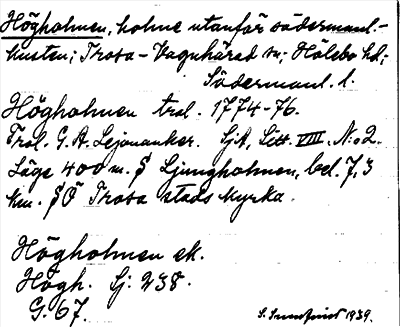 Högholmen, holme utanför södermanl.-
kusten; Trosa-Vagnhärad sn; Hölebo hd;
Södermanl. l.
Högholmen tral. 1774-76.
Tral. G. A. Lejonanker. Sjk, Litt. VIII. No 2.
Läge 400 m. S Ljungholmen, bel. 7,3
km. SÖ Trosa stads kyrka.
Högholmen ek.
Högh. Sj. 238.
G. 67.
S. Sundqvist 1939.